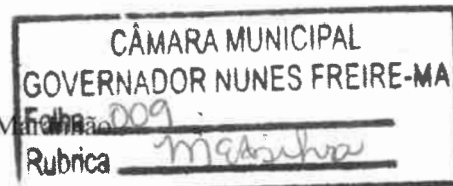 CÂMARA MUNICIPAL
GOVERNADOR NUNES FREIRE-MA
Folha 009
Rubrica